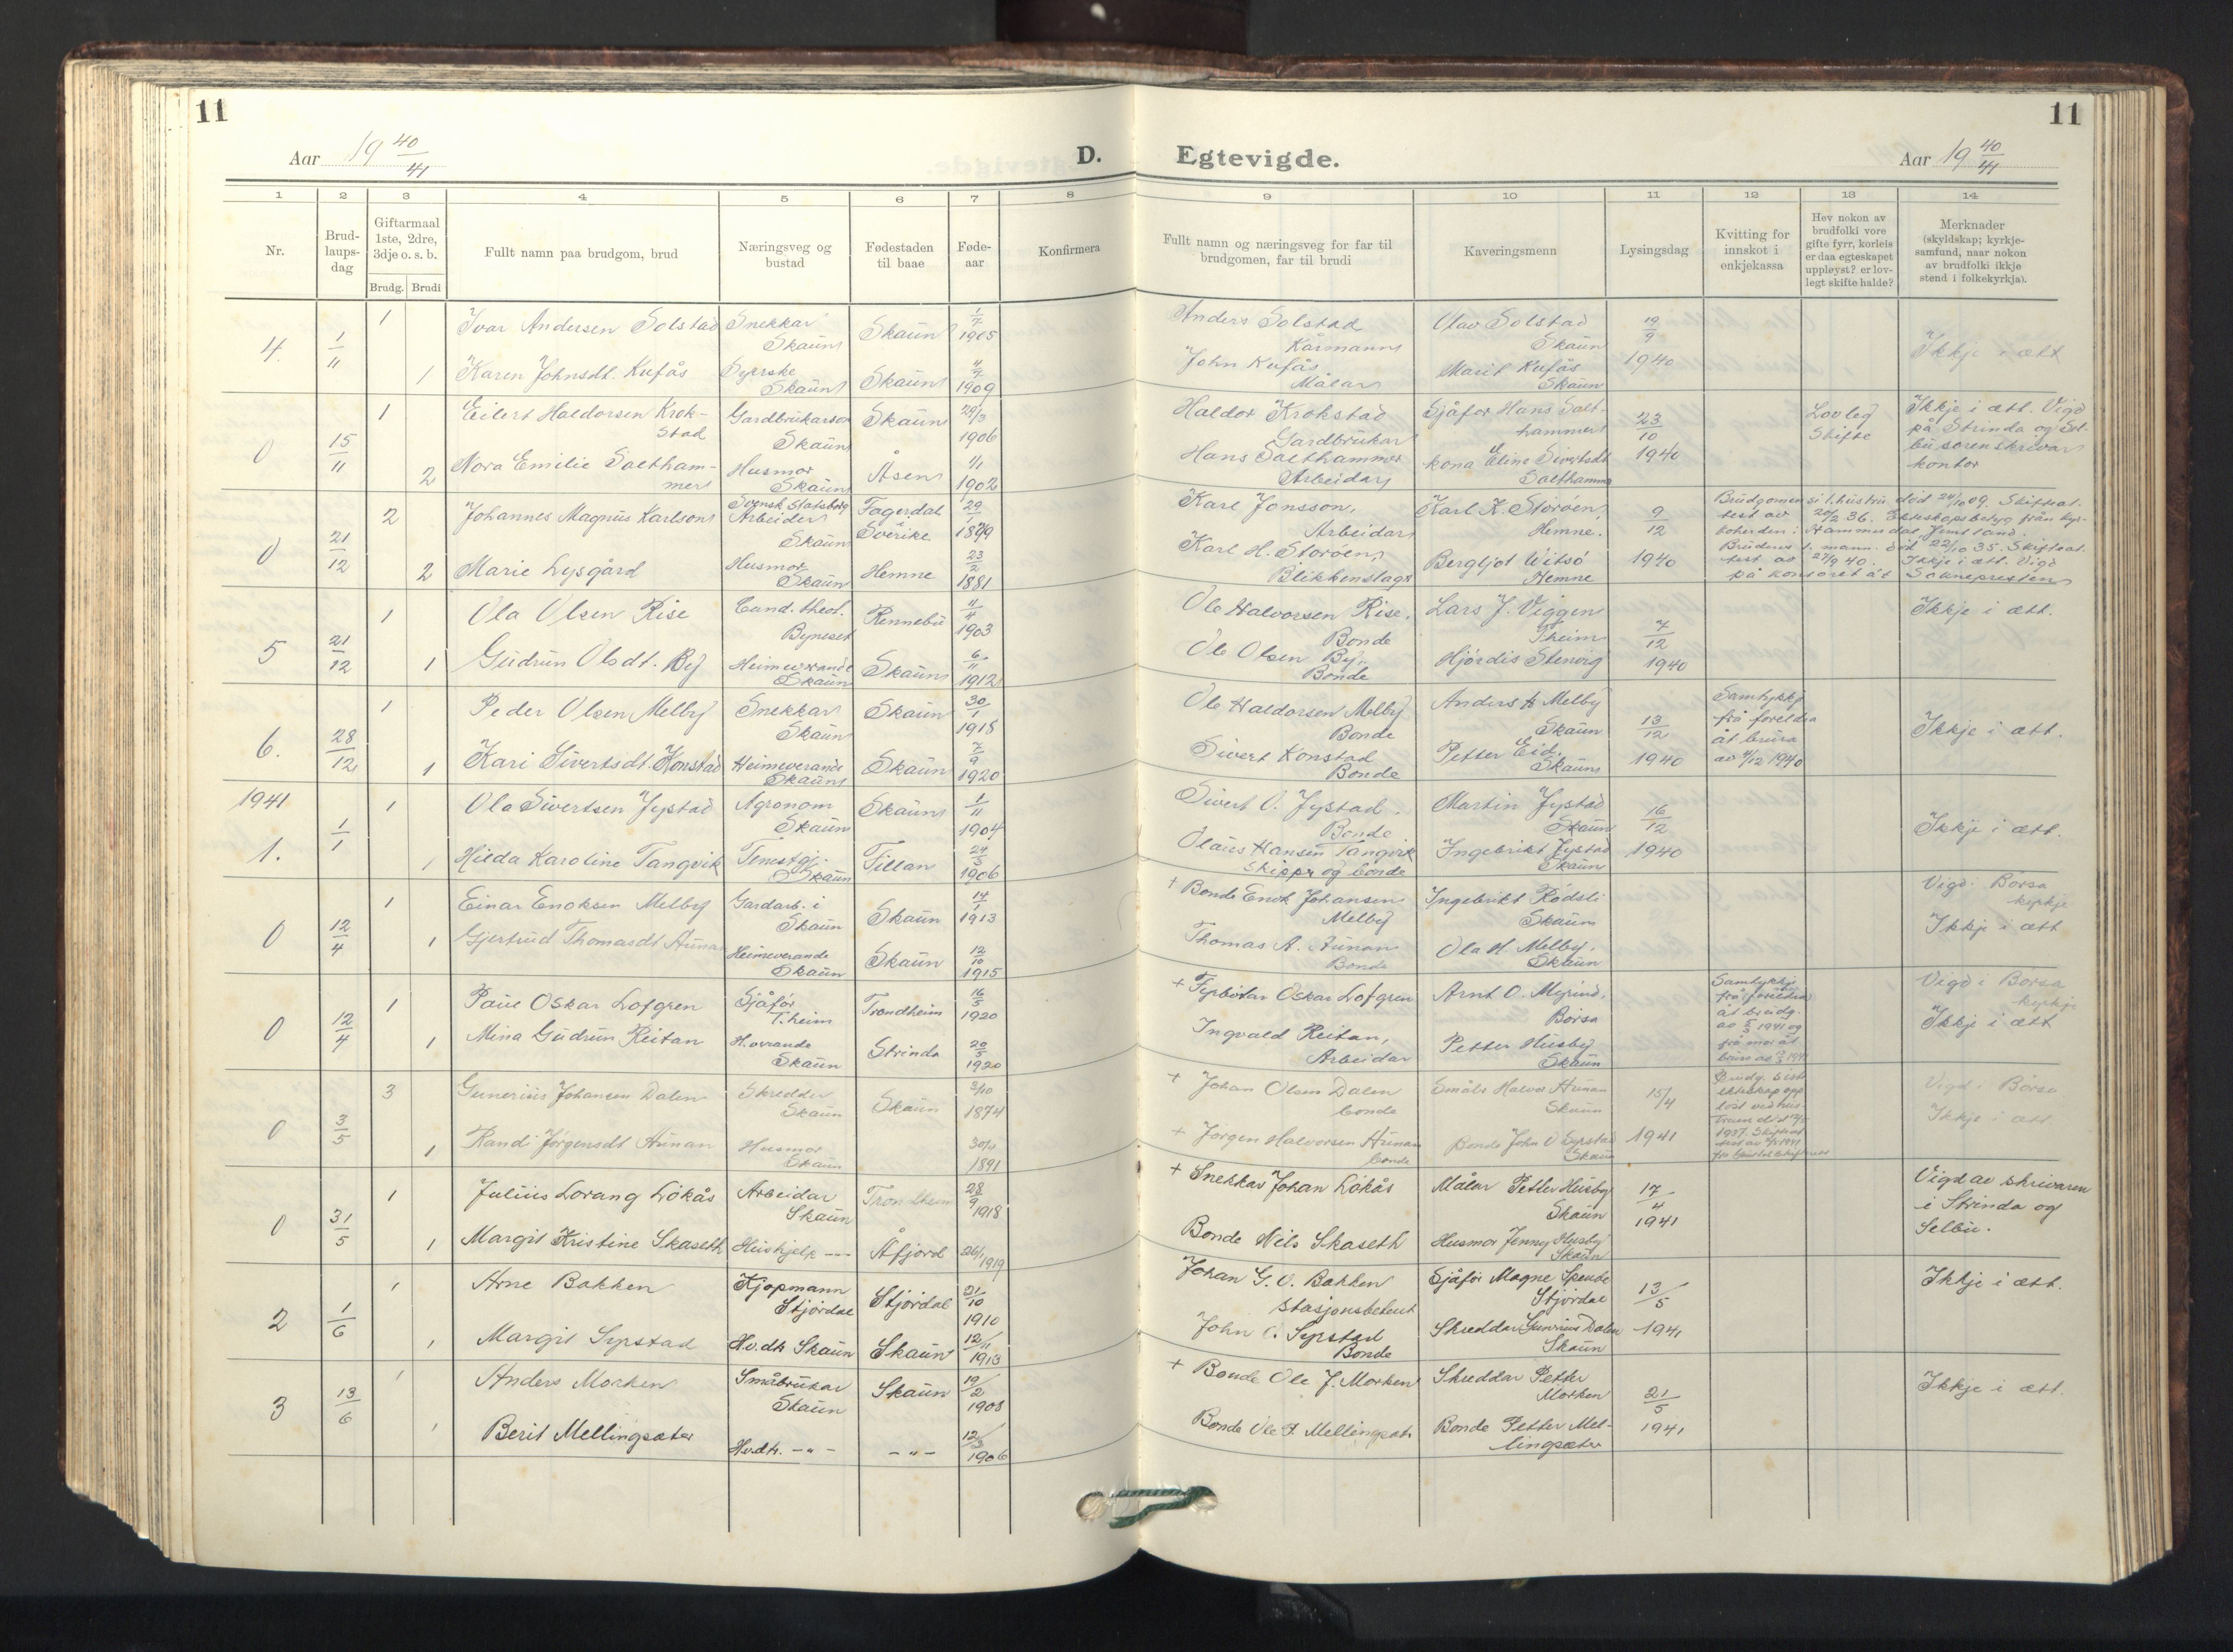 11
11
Aar 19 40/41
D. Egtevigde.
Aar 19 40/41
1 2 3 4 5 6 7 8 9 10 11 12 13 14
Nr.
Brud-
laups-
dag
Giftarmaal
1ste, 2dre,
3dje o. s. b.
Brudg. Brudi
Fullt namn paa brudgom, brud
Næringsveg og
bustad
Fødestaden
til baae
Føde-
aar
Konfirmera
Fullt namn og næringsveg for far til
brudgomen, far til brudi
Kaveringsmenn
Lysingsdag
Kvitting for
innskot i
enkjekassa
Hev nokon av
brudfolki vore
gifte fyrr, korleis
er daa egteskapet
uppløyst? er lov-
legt skifte halde?
Merknader
(skyldskap; kyrkje-
samfund, naar nokon
av brudfolki ikkje
stend i folkekyrkja).
4. 1/11
1 Ivar Andersen Solstad Snekkar Skaun Skaun 1/7 1905 Anders Solstad Kårmann Olav Solstad Skaun 19/9 1940
1 Karen Johnsdt. Kufås Syerske Skaun Skaun 4/7 1909 John Kufås Målar Marit Kufås Skaun Ikkje i ætt
0 15/11
1 Eilert Haldorsen Krok-
stad Gardbrukarson Skaun Skaun 29/3 1906 Haldor Krokstad Gardbrukar Sjåfør Hans Salt-
hammer 23/10 1940 Lovleg
Skifte Ikkje i ætt. Vigd
på Strinda og Sel-
bu sorenskrivar
kontor
2 Nora Emilie Saltham-
mer Husmor Skaun Åsen 1/1 1902 Hans Salthammer Arbeidar kona Eline Sivertsdt
Salthammer
0 21/12
2 Johannes Magnus Karlson Svensk Statsborg
Arbeider Skaun Fagerdal
Sverike 29/ 1879 Karl Jonsson, Arbeidar Karl K. Storøen, Hemne. 9/12 1940
Brudgomen si 1. hustru død 24/10 09. Skifteat.
test av 20/2 36. Ekteskapsbetyg från kyr-
koherden i Hammerdal, Jemtland.
2 Marie Lysgård Husmor Skaun Hemne 23/2 1881 Karl H. Storøen, Blikkenslager Bergljot Witsø Hemne
Brudens 1. mann død 22/10 35. Skifteat.
test av 27/9 40. Ikkje i ætt. Vigd
på kontoret åt Soknepresten
5 21/12
1 Ola Olsen Rise Cand. theol. Byneset Rennebu 11/4 1903 Ole Halvorsen Rise, Bonde Lars J. Viggen Theim 7/12 1940 Ikkje i ætt.
1 Gudrun Olsdt. By Heimeverande Skaun Skaun 6/11 1912 Ole Olsen By, Bonde Hjørdis Stenvig
6. 28/12
1 Peder Olsen Melby Snekkar Skaun Skaun 30/1 1918 Ole Haldorsen Melby Bonde Anders H Melby Skaun 13/12 1940 Samtykkj
frå foreldra
åt brura
av 4/12 1940 Ikkje i ætt.
1 Kari Sivertsdt. Konstad Heimeverande Skaun Skaun 7/9 1920 Sivert Konstad Bonde Petter Eid. Skaun
1941
1. 1/1
1 Ola Sivertsen Jystad Agronom Skaun Skaun 1/11 1904 Sivert O. Jystad, Bonde Martin Jystad Skaun 16/12 1940 Ikkje i ætt.
1 Hilda Karoline Tangvik Tenestgj. Skaun Fillan 24/5 1906 Olaus Hansen Tangvik
Skippr og bonde Ingebrikt Jystad Skaun
0 12/4
1 Einar Enoksen Melby Gardarb. i Skaun Skaun 14/1 1913 + Bonde Enok Johansen
Melby Ingebrikt Rødsli Skaun Vigd i Børsa
kyrkje
Ikkje i ætt
1 Gjertrud Thomasdt Aunan Heimeverande Skaun Skaun 12/10 1915 Thomas A. Aunan Bonde Ola H. Melby. Skaun
0 12/4
1 Paul Oskar Lofgren Sjåfør T.heim Trondheim 16/5 1920 + Fyrbøtar Oskar Lofgren Arnt O. Myrind, Børsa Samtykkje
frå foreldra
åt brudg.
av 5/3 1941 og
frå mor åt
brura av 1941 Vigd i Børsa
kyrkje
Ikkje i ætt
1 Mina Gudrun Reitan H.verande Skaun Strinda 20/5 1920 Ingvald Reitan, Arbeidar Petter Husby Skaun
0 3/5
3 Gunerius Johansen Dalen Skredder Skaun Skaun 3/10 1874 + Johan Olsen Dalen bonde Småbr Halvor Aunan Skaun 15/4 1941 Brudg. siste
ekteskap opp
løst ved hus-
truens død
1937. Skifteat
test av 1941 Vigd i Børsa
Ikkje i ætt
1 Randi Jørgensdt Aunan Husmor Skaun 30/4 1891 + Jørgen Halvorsen Aunan bonde Bonde John O Syrstad Skaun
0 31/5
1 Julius Lorang Løkås Arbeidar Skaun Trondheim 28/9 1918 + Snekkar Johan Løkås Målar Petter Husby Skaun 17/4 1941 Vigd av skrivaren
i Strinda og
Selbu.
1 Margit Kristine Skaseth Hushjelp --- Åfjord 26/1 1919 Bonde Nils Skaseth Husmor Jenny Husby Skaun
2 1/6
1 Arne Bakken Kjøpmann Stjørdal Stjørdal 21/10 1910 Johan G. O. Bakken
stasjonsbetient Sjåfør Magne Speude Stjørdal 13/5 1941 Ikkje i ætt.
1 Margit Syrstad H.v.dtr Skaun Skaun 12/11 1913 John O. Syrstad Bonde Skreddar Gunerius Dalen Skaun
3 13/6
1 Anders Morken Småbrukar Skaun Skaun 19/2 1908 + Bonde Ole J. Morken Skreddar Petter
Morken 21/5 1941 Ikkje i ætt.
1 Berit Mellingsæter H.v.dtr. -"- -"- 12/3 1906 Bonde Ole P. Mellingsæt. Bonde Petter Mel-
lingsæter